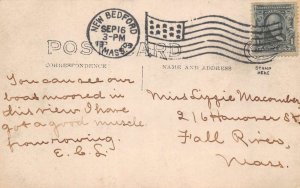 NEW BEDFORD
SEP 16
3-PM
MASS.
POST CARD
CORRESPONDENCE
NAME AND ADDRESS
STAMP
HERE
You can see our
boat moored in
this view I have
got a good muscle
from rowing.
E. C. L.
Miss Lizzie Macomber
216 Hanover St
Fall River,
Mass.